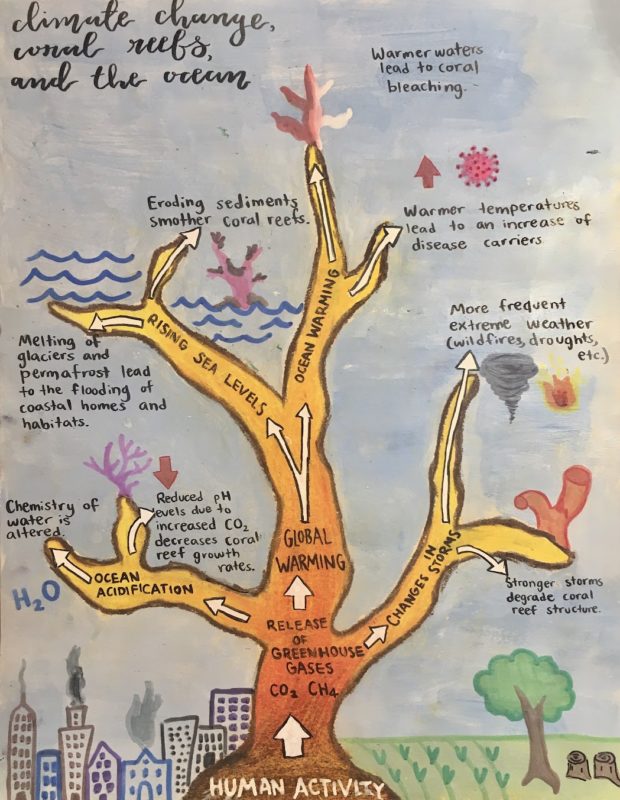 climate change,
coral reefs,
and the ocean
Warmer waters
lead to coral
bleaching.
Eroding sediments
smother coral reefs.
Warmer temperatures
lead to an increase of
disease carriers
RISING SEA LEVELS
OCEAN WARMING
More frequent
extreme weather
(wildfires, droughts,
etc.)
Melting of
glaciers and
permafrost lead
to the flooding of
coastal homes and
habitats.
Chemistry of
water is
altered.
Reduced pH
levels due to
increased CO2
decreases coral
reef growth
rates.
H2O
OCEAN
ACIDIFICATION
GLOBAL
WARMING
CHANGES IN
STORMS
Stronger storms
degrade coral
reef structure.
RELEASE
OF
GREENHOUSE
GASES
CO2 CH4
HUMAN ACTIVITY